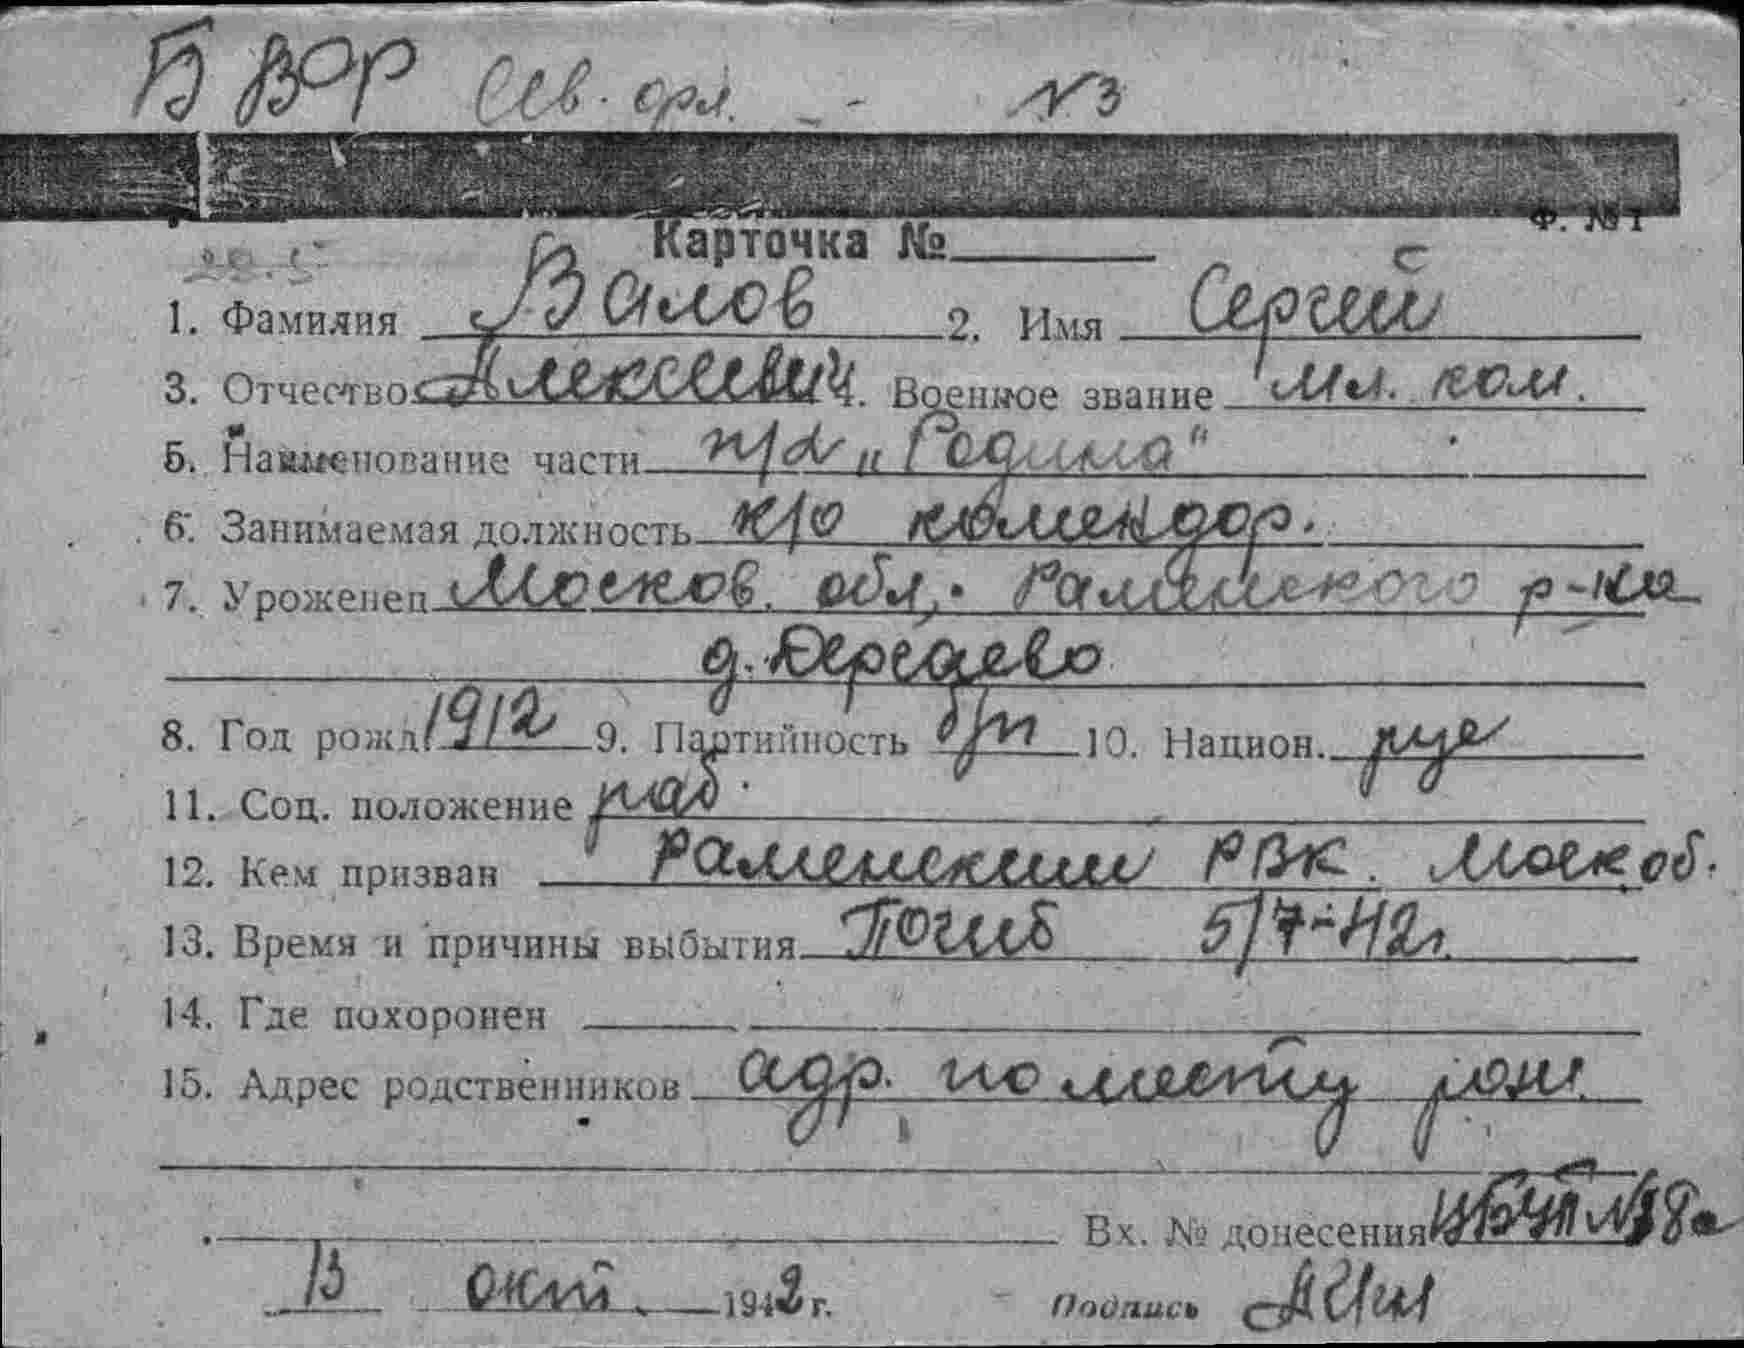 Б ВОР Сев. орл. - N 3
Ф. № 1
Карточка № 
20.5
1. Фамилия Валов 2. Имя Сергей
3. Отчество Алексеевич 4. Военное звание мл. ком.
5. Наименование части п/х „Родина"
6. Занимаемая должность к/о комендор.
7. Уроженец Москов. обл. Раменского р-на
д. Дергаево
8. Год рожд. 1912 9. Партийность б/п 10. Национ. рус
11. Соц. положение раб.
12. Кем призван Раменским РВК. Моск об.
13. Время и причины выбытия Погиб 5/7-42г.
14. Где похоронен
15. Адрес родственников адр. по месту рож.
Вх. № донесения
13 окт. 1942 г. Подпись